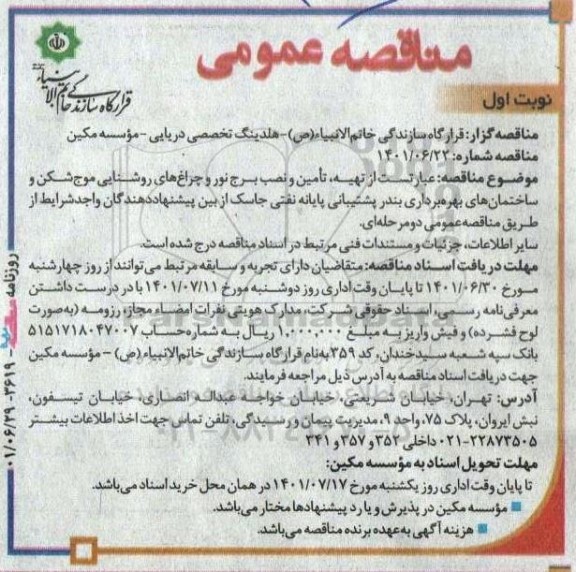 مناقصه عمومی
قرارگاه سازندگی خاتم الانبیاء
نوبت اول
مناقصه گزار: قرارگاه سازندگی خاتم الانبیاء (ص) - هلدینگ تخصصی دریایی - مؤسسه مکین
مناقصه شماره: ۱۴۰۱/۰۶/۲۳
موضوع مناقصه: عبارتست از تهیه، تأمین و نصب برج نور و چراغ‌های روشنایی موج‌شکن و
ساختمان‌های بهره‌برداری بندر پشتیبانی پایانه نفتی جاسک از بین پیشنهاددهندگان واجد شرایط از
طریق مناقصه عمومی دومرحله‌ای.
سایر اطلاعات، جزئیات و مستندات فنی مرتبط در اسناد مناقصه درج شده است.
مهلت دریافت اسناد مناقصه: متقاضیان دارای تجربه و سابقه مرتبط می‌توانند از روز چهارشنبه
مورخ ۱۴۰۱/۰۶/۳۰ تا پایان وقت اداری روز دوشنبه مورخ ۱۴۰۱/۰۷/۱۱ با در دست داشتن
معرفی‌نامه رسمی، اسناد حقوقی شرکت، مدارک هویتی نفرات امضاء مجاز، رزومه (به‌صورت
لوح فشرده) و فیش واریز به مبلغ ۱.۰۰۰.۰۰۰ ریال به شماره حساب ۵۱۵۱۷۱۸۰۴۷۰۰۷
بانک سپه شعبه سیدخندان، کد ۳۵۹ به‌نام قرارگاه سازندگی خاتم الانبیاء (ص) - مؤسسه مکین
جهت دریافت اسناد مناقصه به آدرس ذیل مراجعه فرمایند.
آدرس: تهران، خیابان شریعتی، خیابان خواجه عبداله انصاری، خیابان تیسفون،
نبش ایروان، پلاک ۷۵، واحد ۹، مدیریت پیمان و رسیدگی، تلفن تماس جهت اخذ اطلاعات بیشتر
۰۲۱-۲۲۸۷۳۵۰۵ داخلی ۳۵۲ و ۳۵۷ و ۳۴۱
مهلت تحویل اسناد به مؤسسه مکین:
تا پایان وقت اداری روز یکشنبه مورخ ۱۴۰۱/۰۷/۱۷ در همان محل خرید اسناد می‌باشد.
مؤسسه مکین در پذیرش و یا رد پیشنهادها مختار می‌باشد.
هزینه آگهی به‌عهده برنده مناقصه می‌باشد.
روزنامه - ۳۶۱۹ - ۰۱/۰۶/۲۹